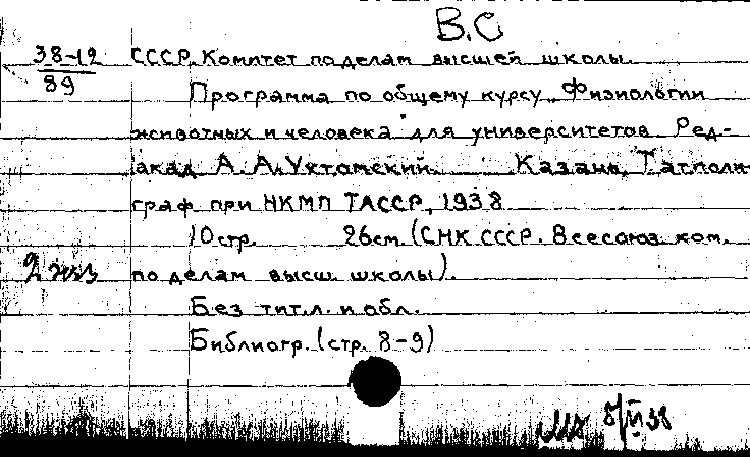 В.С
38-12
89
СССР. Комитет по делам высшей школы.
Программа по общему курсу „Физиологии
животных и человека" для университетов. Ред.-
акад. А. А. Ухтомский. Казань, Татполи-
граф при НКМП ТАССР, 1938
10 стр. 26 см. (СНК СССР. Всесоюз. ком.
2 экз
по делам высш. школы).
Без тит. л. и обл.
Библиогр. (стр. 8-9)